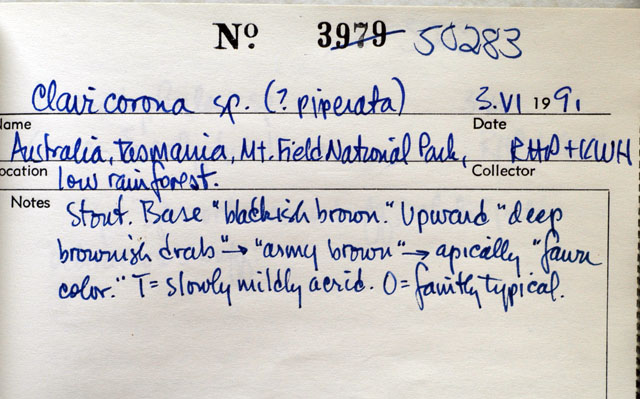 Nº 3979 50283
Clavicorona sp. (? piperata) 3.VI 1991
Name Date
Australia, Tasmania, Mt. Field National Park, RHP+KWH
ocation low rainforest. Collector
Notes Stout. Base "blackish brown." Upward "deep
brownish drab" → "army brown" → apically "fawn
color." T = slowly mildly acrid. O = faintly typical.